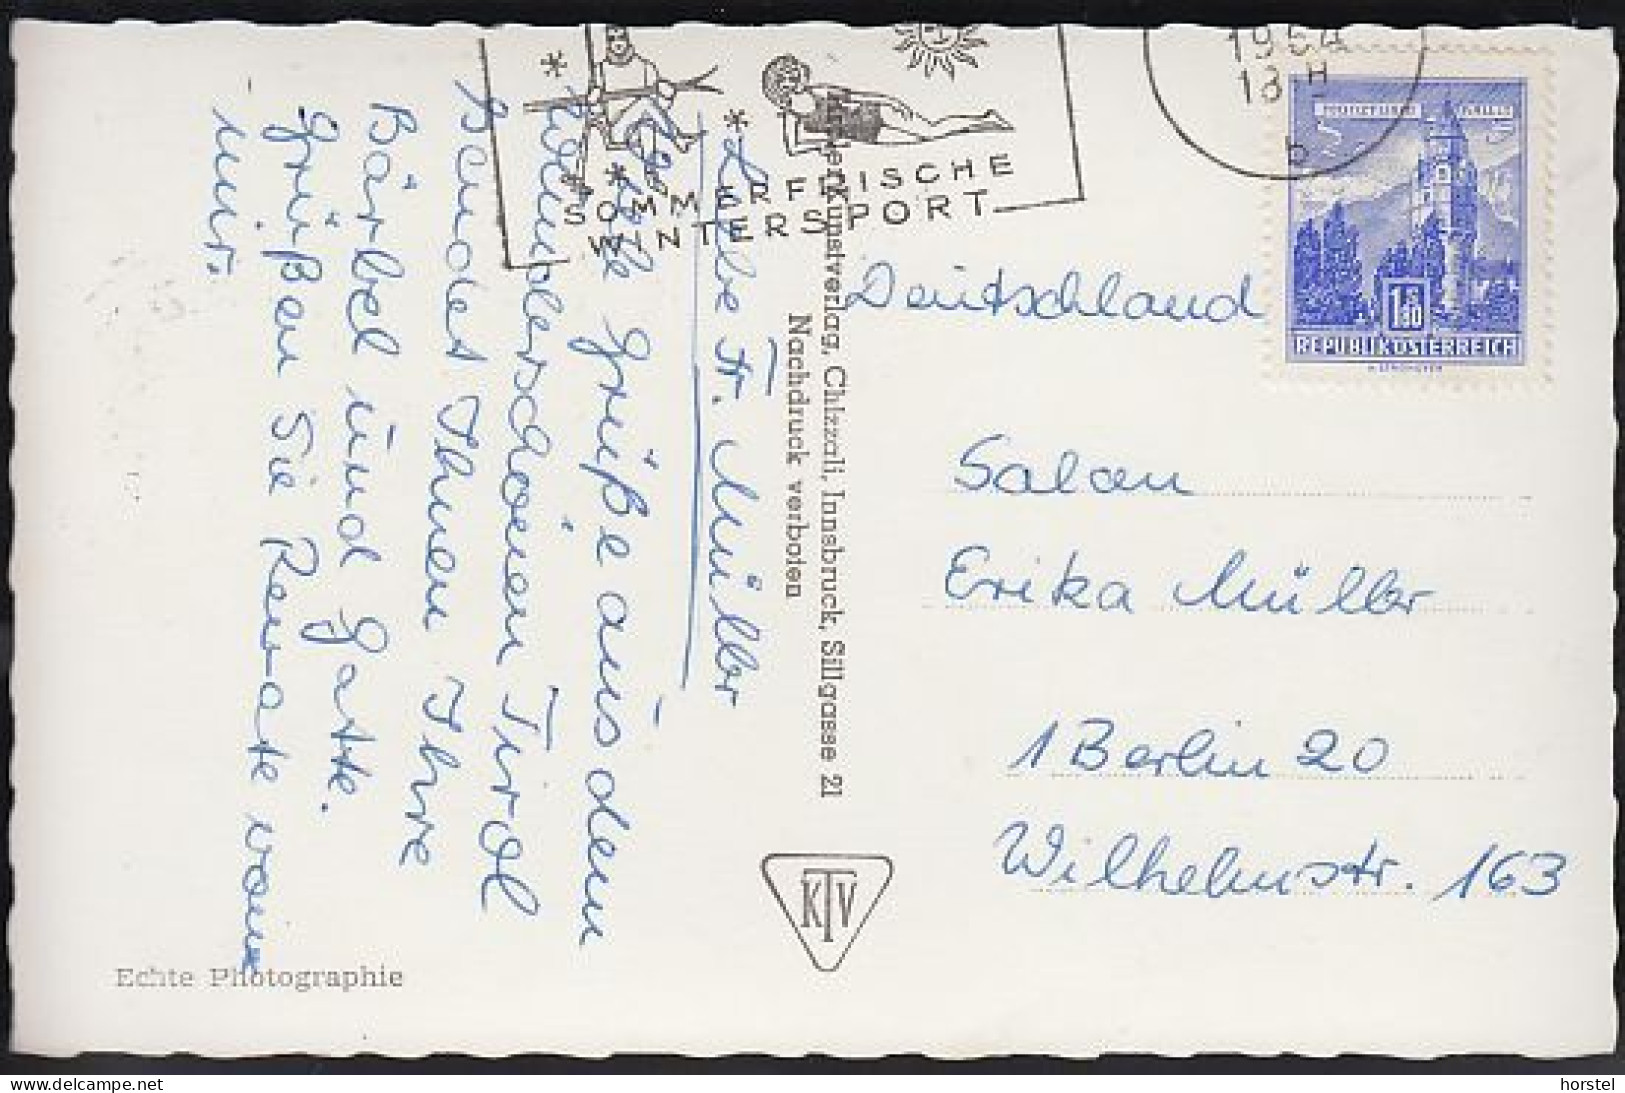 Liebe Fr. Müller
Grüße aus dem
wunderschönen Tirol
sendet Ihnen Ihre
Bärbel und Gatte.
Grüßen Sie Renate von
mir.
Echte Photographie
Kunstverlag, Chizzali, Innsbruck, Sillgasse 21
Nachdruck verboten
KTV
SOMMERFRISCHE
WINTERSPORT
1964
18 H
b
1.50
REPUBLIK ÖSTERREICH
Deutschland
Salon
Erika Müller
1 Berlin 20
Wilhelmstr. 163
horstel